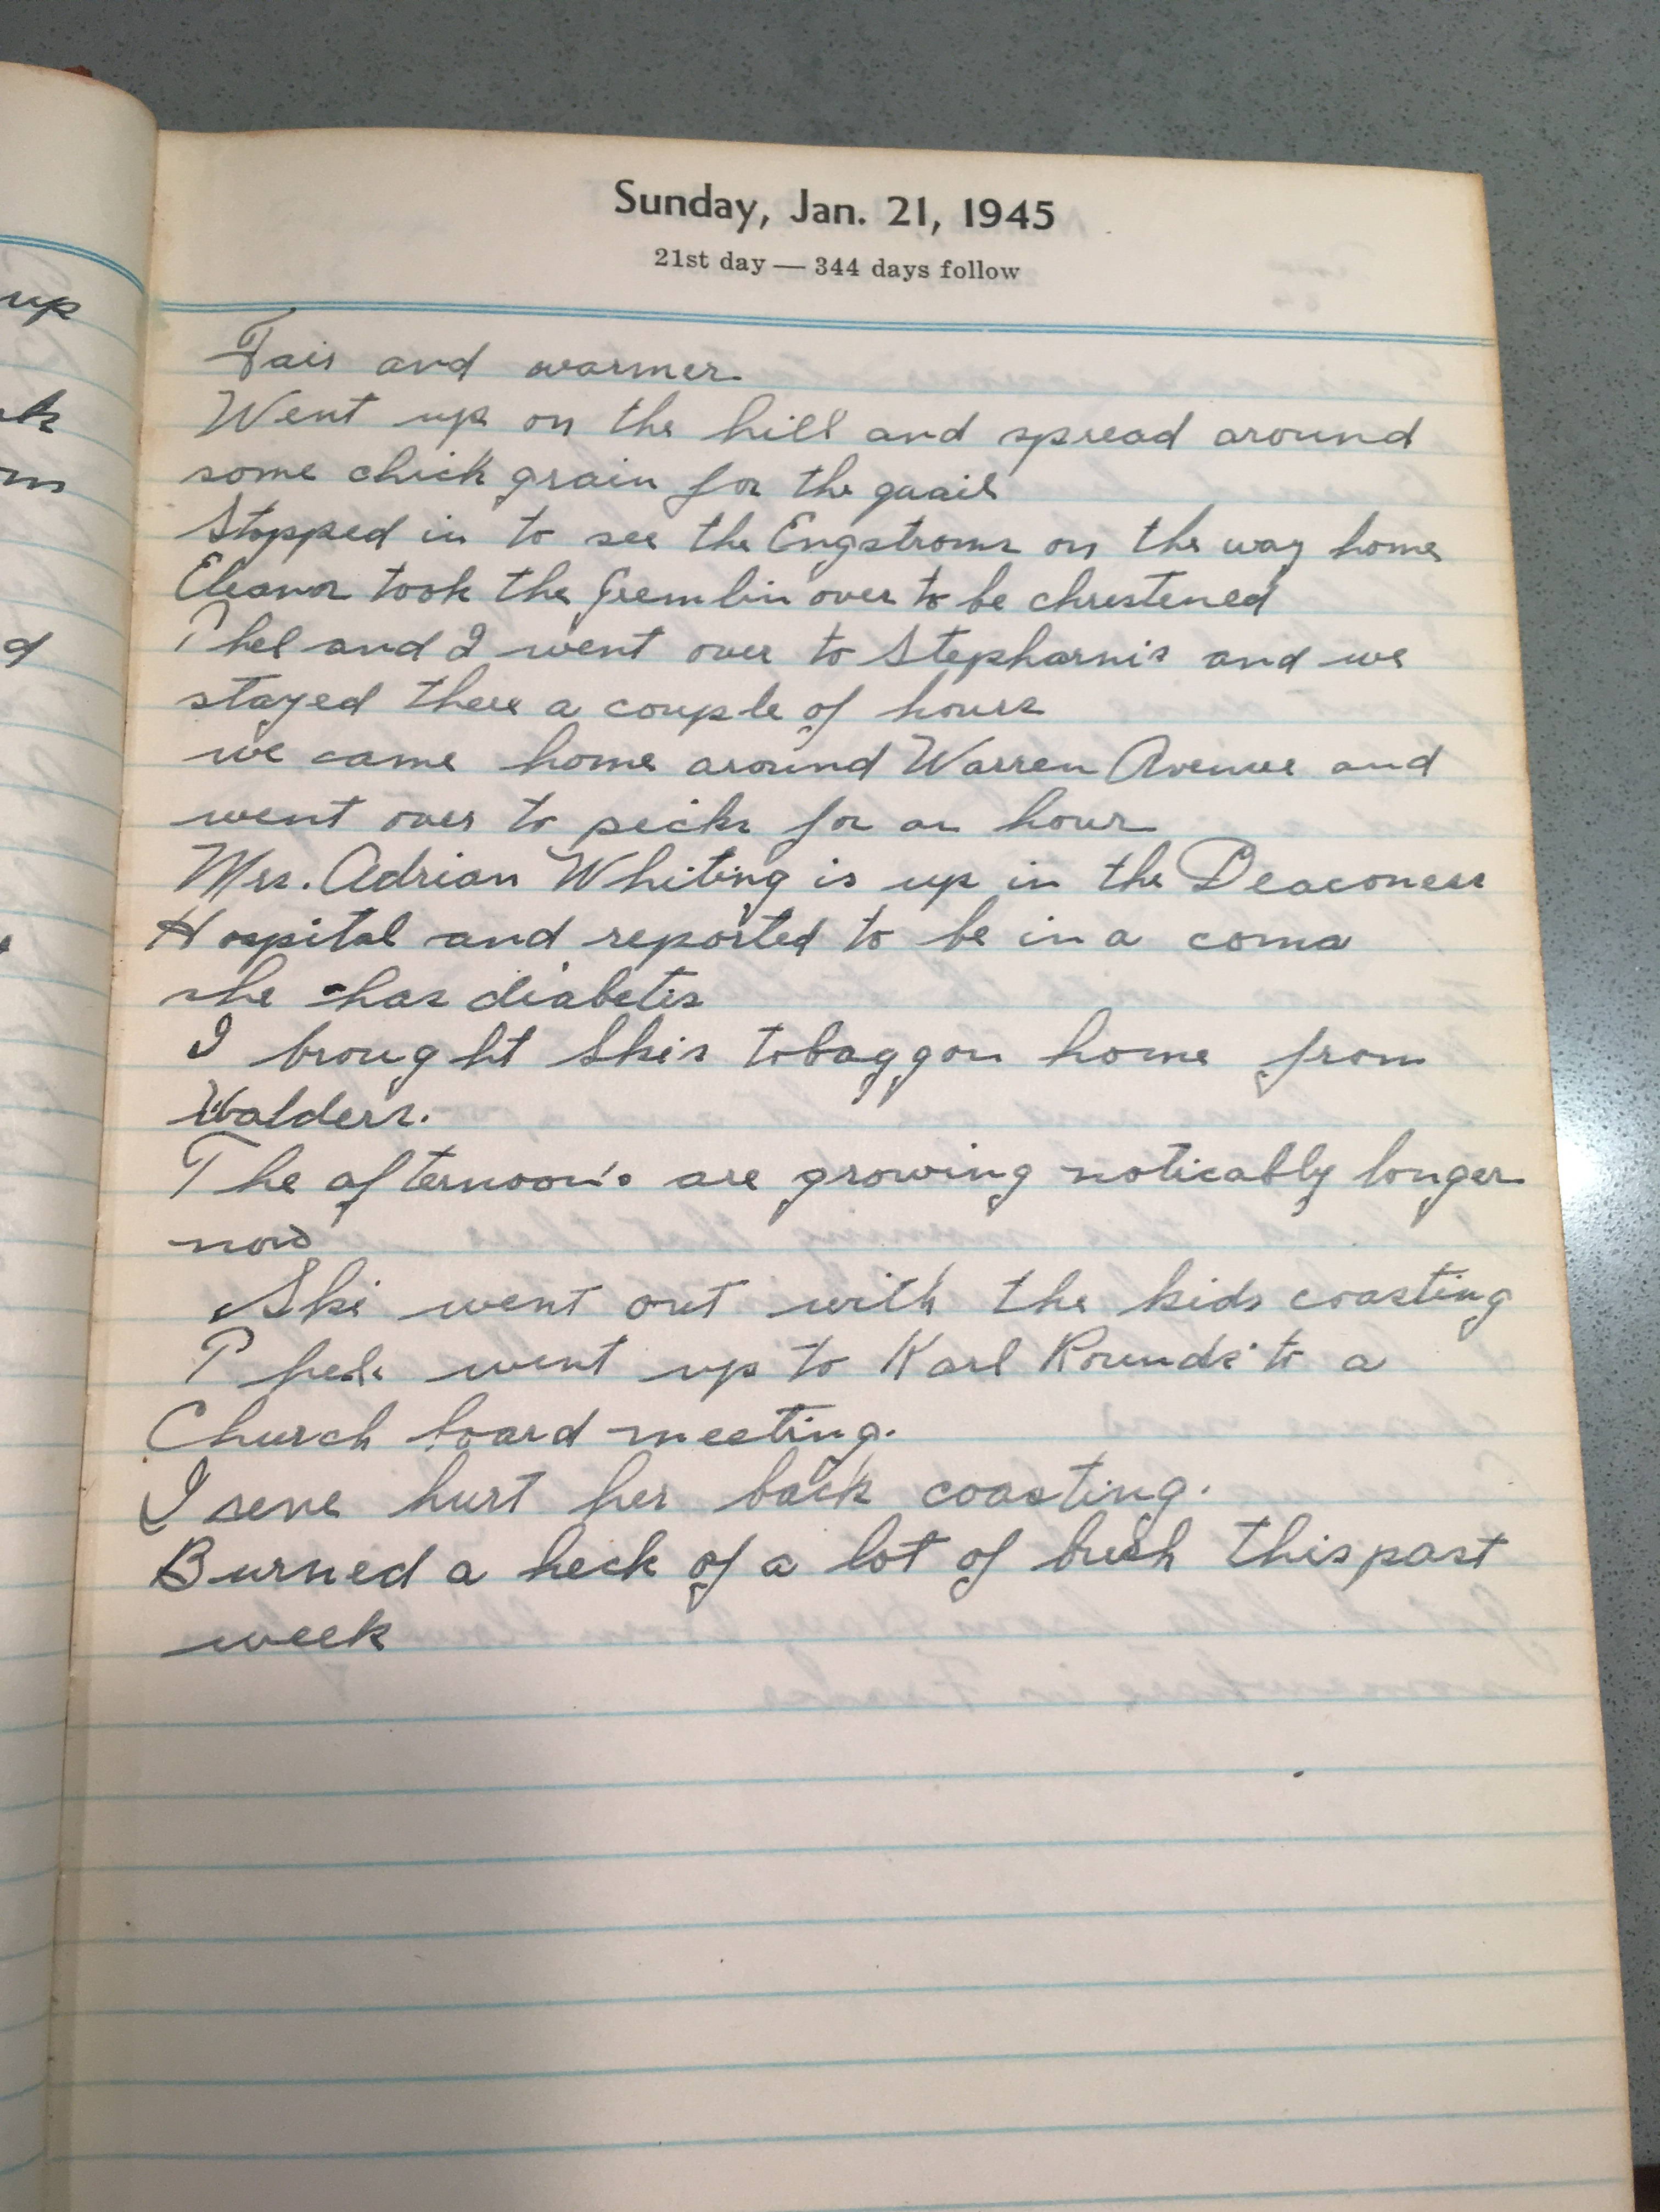 up
Sunday, Jan. 21, 1945
21st day — 344 days follow
Fair and warmer.
Went up on the hill and spread around
some chick grain for the quail
Stopped in to see the Engstroms on the way home
Eleanor took the Gremlin over to be chrestened
Phel and I went over to Stepharnis and we
stayed there a couple of hours
we came home around Warren Avenue and
went over to picks for an hour
Mrs. Adrian Whiting is up in the Deaconess
Hospital and reported to be in a coma
she has diabetes
I brought Skis tobaggon home from
Walders.
The afternoon's are growing noticably longer
now
Ski went out with the kids coasting
went up to Karl Rounds' to a
Church board meeting.
Irene hurt her back coasting.
Burned a heck of a lot of brush this past
week